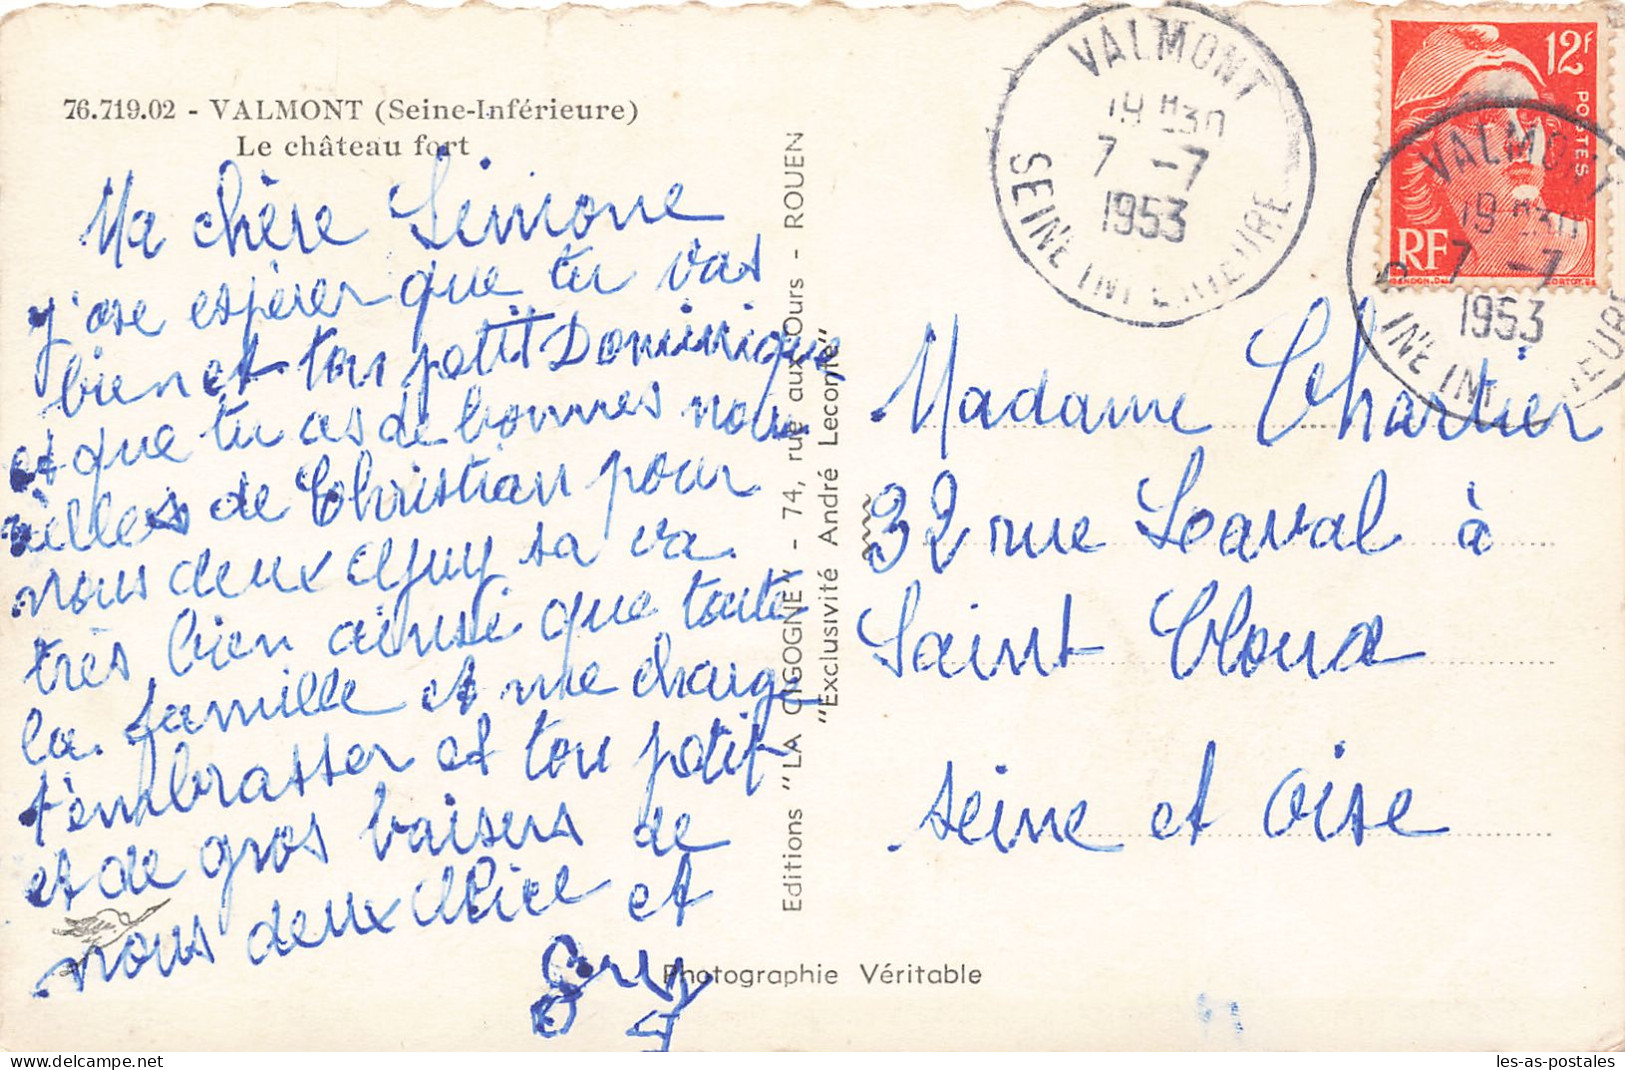 76.719.02 - VALMONT (Seine-Inférieure)
Le château fort
Ma chère Simone
j'ose espérer que tu vas
bien et ton petit Dominique
et que tu as de bonnes nou
velles de Christian pour
nous deux Guy sa va
très bien ainsi que toute
la famille et me charge
t'embrasser et ton petit
et de gros baisers de
nous deux Alice et
Guy
Editions "LA CIGOGNE" - 74, rue aux Ours - ROUEN
"Exclusivité André Leconte"
Photographie Véritable
VALMONT
19 H30
7 -7
1953
SEINE INFERIEURE
12f
POSTES
RF
VALMONT
19 H30
7 -7
1953
SEINE INFERIEURE
Madame Chartier
32 rue Laval à
Saint Cloud
Seine et Oise
les-as-postales